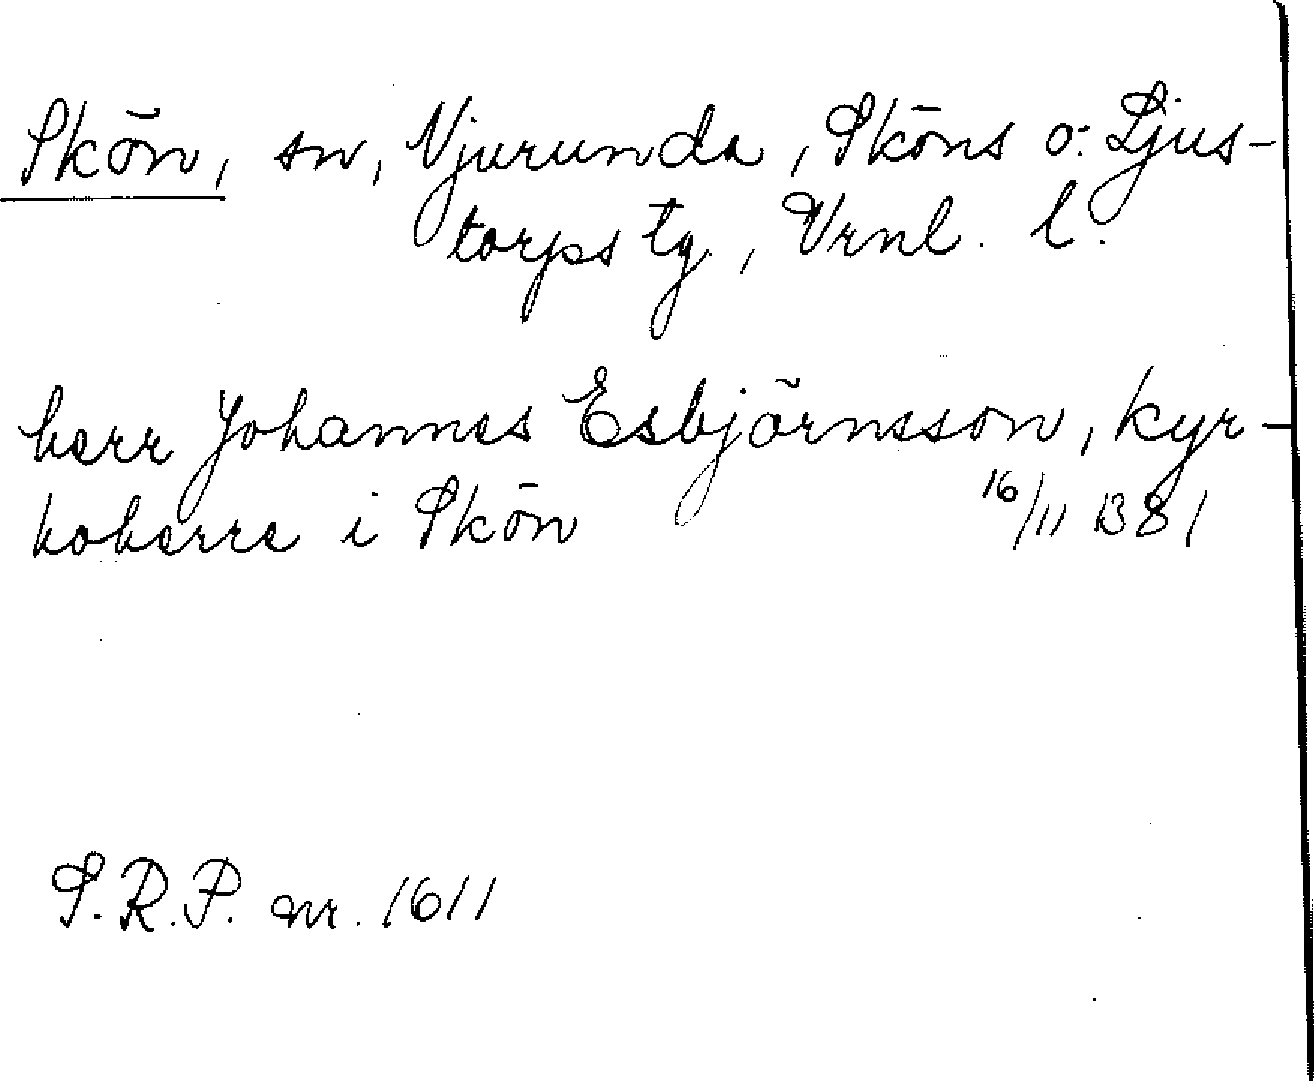 Skön, sn, Njurunda, Sköns o. Ljus-
torps tg, Vrnl. l.
herr Johannes Esbjörnsson, kyr-
koherre i Skön 16/11 1381
S.R.P. nr. 1611